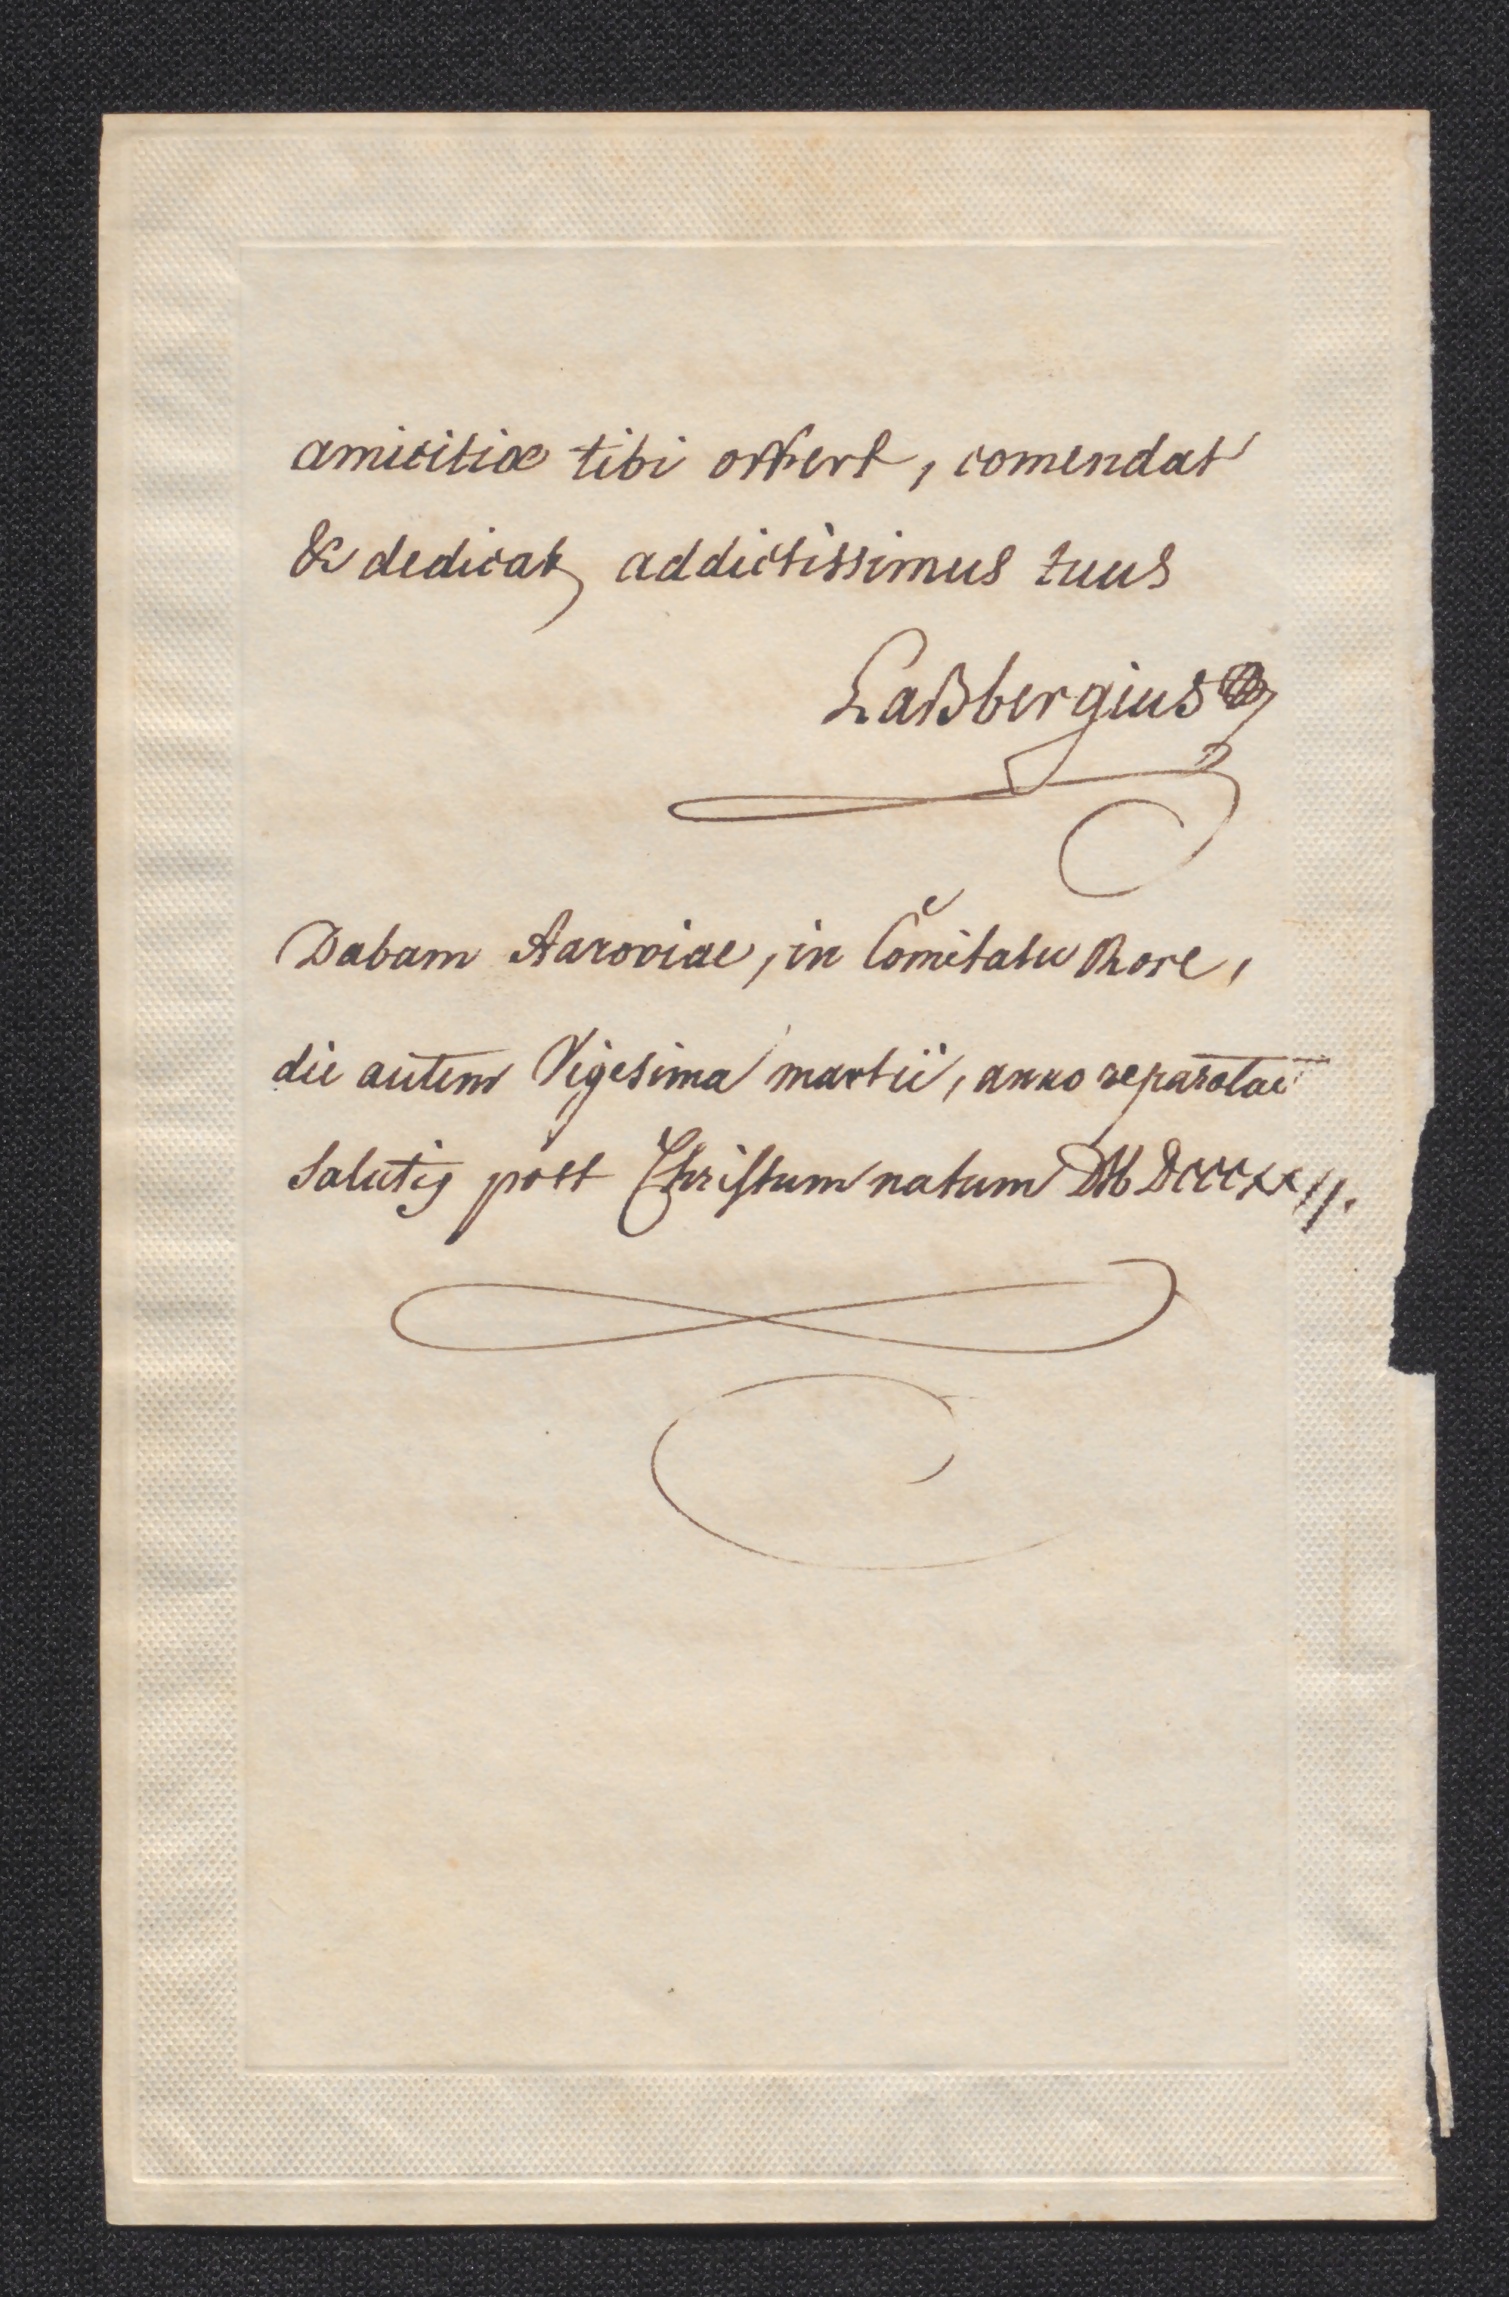 amicitiæ tibi offert, comendat
& dedicat, addictissimus tuus
Laßbergius
Dabam Aaroviae, in Comitatu Rore,
die autem Vigesima martii, anno reparatae
Salutis post Christum natum MDCCCXXII.